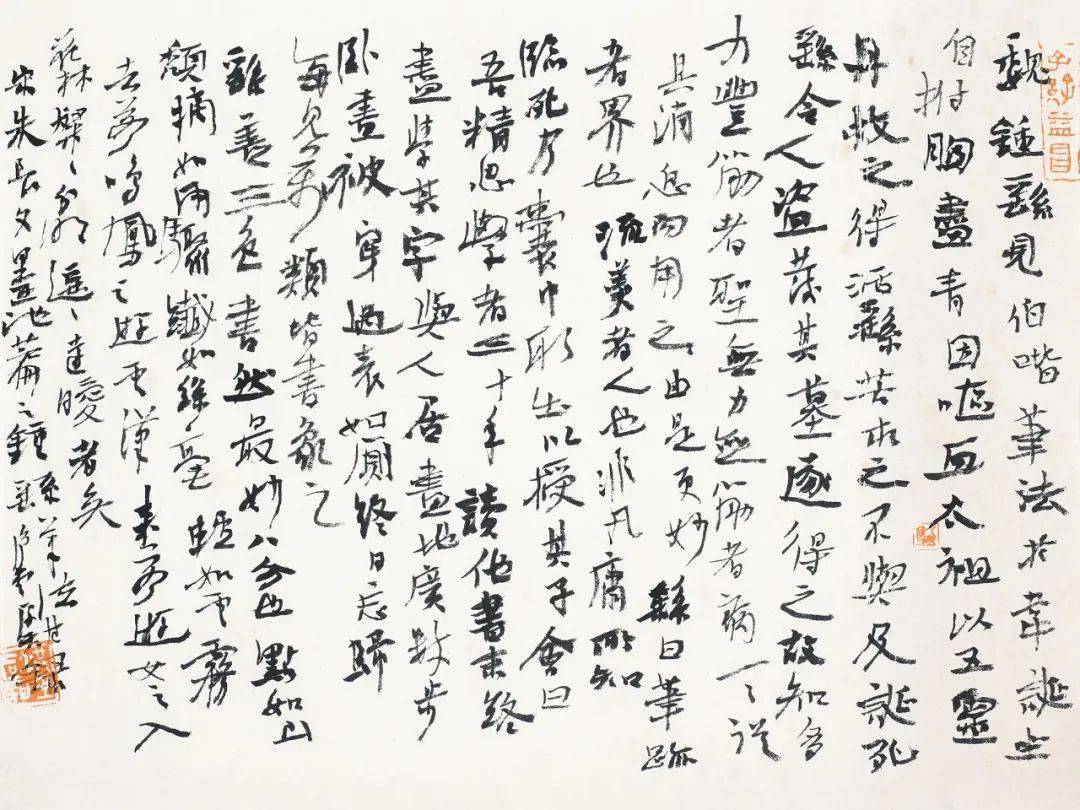 魏鍾繇見伯喈筆法於韋誕坐
自拊胸盡青因嘔血太祖以五靈
丹救之得活繇苦求之不與及誕死
繇令人盜發其墓遂得之故知多
力豐筋者聖無力無筋者病一一從
其消息而用之由是更妙繇曰筆跡
者界也流美者人也非凡庸所知
臨死乃囊中取出以授其子會曰
吾精思學者三十年讀他書未終
盡學其字與人居畫地廣數步
臥畫被穿過表如廁終日忘歸
每見萬類皆書象之
繇善三色書然最妙八分也點如山
頹摘如雨驟纖如絲毫輕如雲霧
去若鳴鳳之遊雲漢來若遊女之入
花林燦燦分明遙遙遠映者矣
宋朱長文墨池編之鍾繇